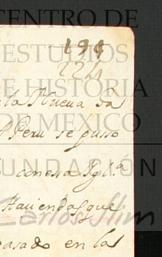 CENTRO DE
ESTUDIOS
DE HISTORIA
DE MÉXICO
FUNDACIÓN
Carlos Slim
199
224
la Nueva
Peru se puso
Haciendas que
pasado en la